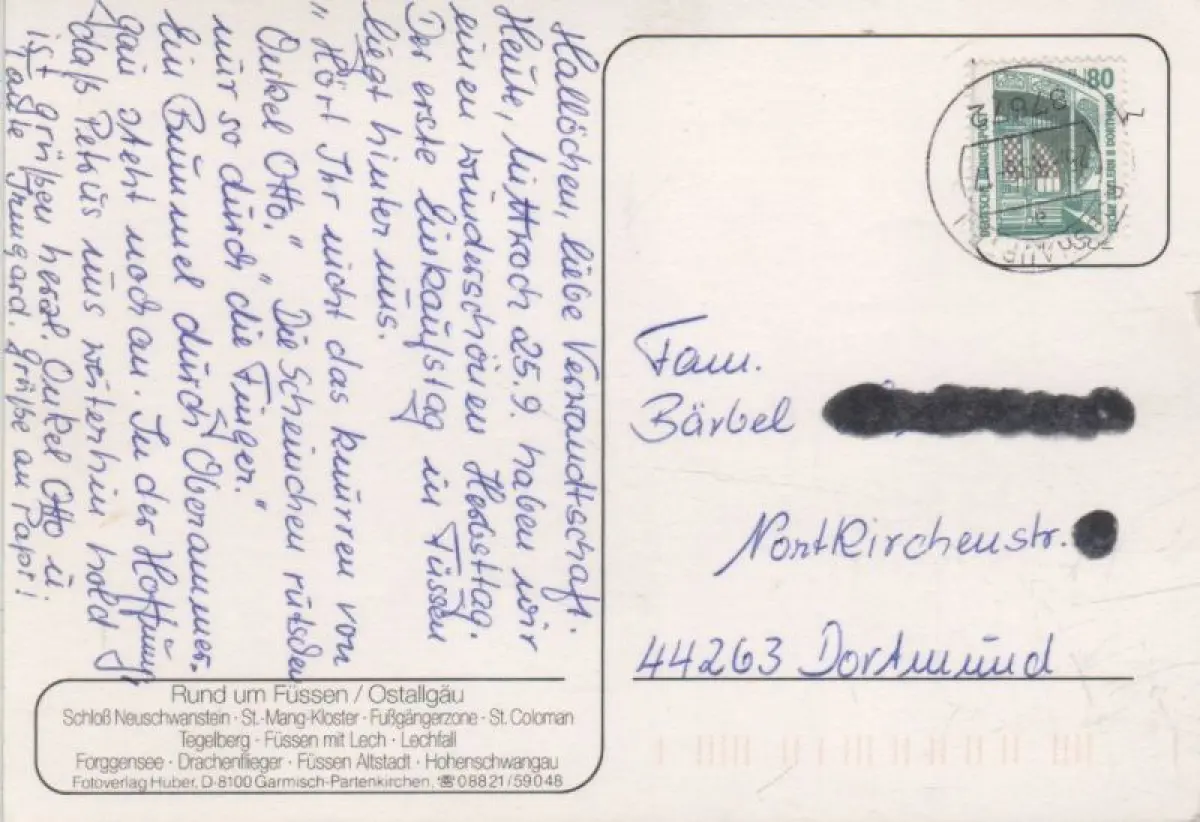 Hallöchen, liebe Verwandtschaft.
Heute, Mittwoch 25.9. haben wir
einen wunderschönen Herbsttag.
Der erste Einkaufstag in Füssen
liegt hinter uns.
"Hört Ihr nicht das knurren von
Onkel Otto." "Die Scheinchen rutschen
nur so durch die Finger."
Ein Bummel durch Oberammer-
gau steht noch an. In der Hoffnung
daß Petrus uns weiterhin hold
ist grüßen herzl. Onkel Otto u.
Tante Irmgard. Grüße an Papi!
80
DEUTSCHE BUNDESPOST
ZECHE ZOLLERN II DORTMUND
87672
Fam.
Bärbel
Nortkirchenstr.
44263 Dortmund
Rund um Füssen / Ostallgäu
Schloß Neuschwanstein · St.-Mang-Kloster · Fußgängerzone · St. Coloman
Tegelberg · Füssen mit Lech · Lechfall
Forggensee · Drachenflieger · Füssen Altstadt · Hohenschwangau
Fotoverlag Huber, D-8100 Garmisch-Partenkirchen, ☎ 08821/59048